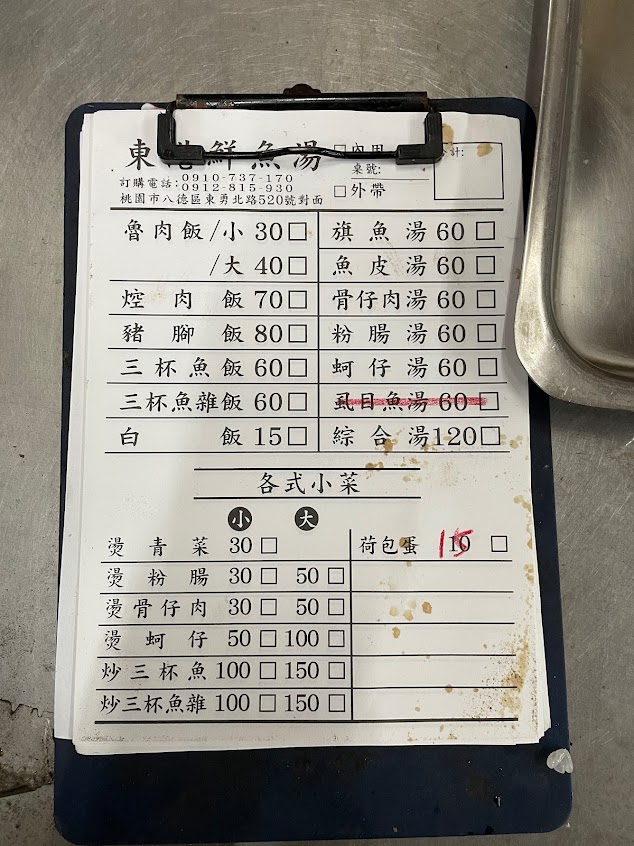 東港鮮魚湯 □內用
桌號:
計:
訂購電話:0910-737-170
0912-815-930
□外帶
桃園市八德區東勇北路520號對面
魯肉飯/小 30□ 旗魚湯 60□
/大 40□ 魚皮湯 60□
焢肉飯 70□ 骨仔肉湯 60□
豬腳飯 80□ 粉腸湯 60□
三杯魚飯 60□ 蚵仔湯 60□
三杯魚雜飯 60□ 虱目魚湯 60□
白飯 15□ 綜合湯 120□
各式小菜
小 大
燙青菜 30□ 荷包蛋 10 15 □
燙粉腸 30□ 50□
燙骨仔肉 30□ 50□
燙蚵仔 50□ 100□
炒三杯魚 100□ 150□
炒三杯魚雜 100□ 150□